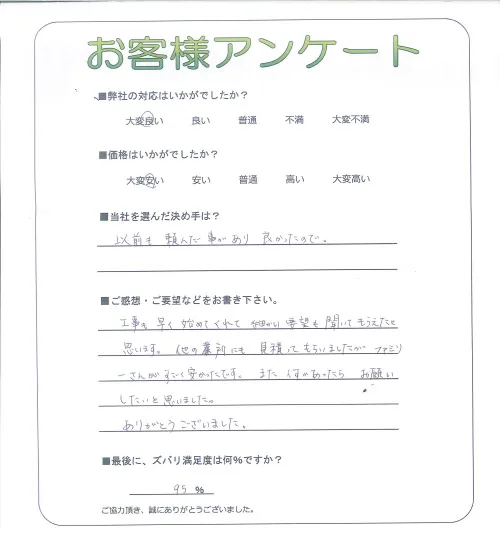 お客様アンケート
■弊社の対応はいかがでしたか?
大変良い 良い 普通 不満 大変不満
■価格はいかがでしたか?
大変安い 安い 普通 高い 大変高い
■当社を選んだ決め手は?
以前も 頼んだ 事があり 良かったので。
■ご感想・ご要望などをお書き下さい。
工事も 早く 始めてくれて 細かい 要望も 聞いて もらえたと
思います。 他の 業所にも 見積って もらいましたが ファミリ
ーさんが すごく 安かったです。 また 何かあったら お願い
したいと 思いました。
ありがとう ございました。
■最後に、ズバリ満足度は何%ですか?
95 %
ご協力頂き、誠にありがとうございました。